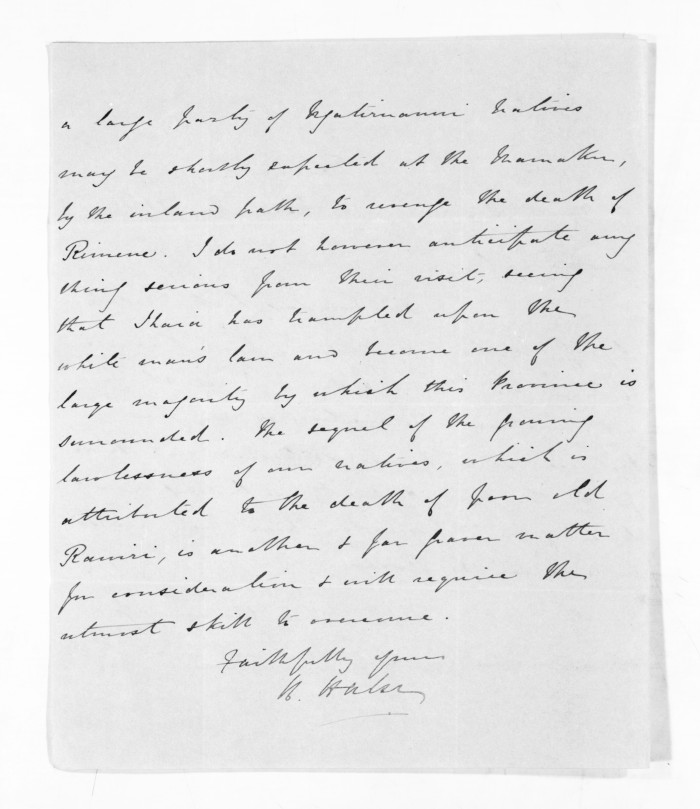 a large party of Ngatiruanui Natives
may be shortly expected at the Mamaku,
by the inland path, to revenge the death of
Rimene. I do not however anticipate any
thing serious from their visit, seeing
that Ihaia has trampled upon the
white man's law and become one of the
large majority by which this Province is
surrounded. The sequel of the growing
lawlessness of our natives, which is
attributed to the death of poor old
Rawiri, is another & far graver matter
for consideration & will require the
utmost skill to overcome.
Faithfully yours
H. Halse